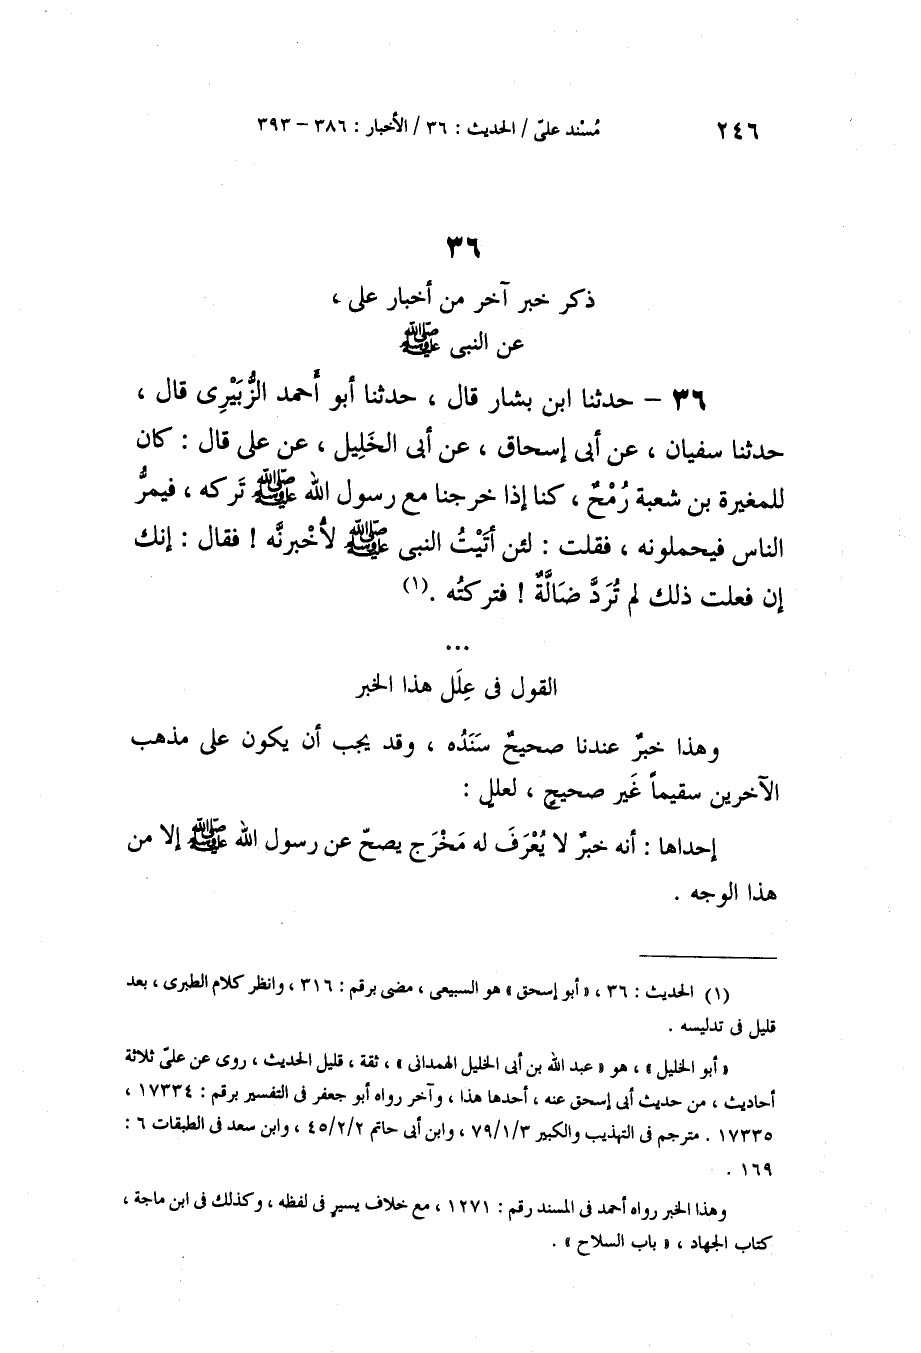 ٢٤٦ مُسْند علىّ / الحديث : ٣٦ / الأخبار : ٣٨٦ – ٣٩٣
٣٦
ذكر خبر آخر من أخبار على ،
عن النبى ﷺ
٣٦ – حدثنا ابن بشار قال ، حدثنا أبو أَحمد الزُّبَيْرِى قال ،
حدثنا سفيان ، عن أبى إسحاق ، عن أبى الخَلِيل ، عن على قال : كان
للمغيرة بن شعبة رُمْحٌ ، كنا إذا خرجنا مع رسول الله ﷺ تَركه ، فيمرُّ
الناس فيحملونه ، فقلت : لئن أتَيْتُ النبى ﷺ لأُخْبرنَّه ! فقال : إنك
إن فعلت ذلك لم تُرَدَّ ضَالَّةٌ ! فتركتُه .(١)
...
القول فى عِلَل هذا الخبر
وهذا خبرٌ عندنا صحيحٌ سَنَدُه ، وقد يجب أن يكون على مذهب
الآخرين سقيماً غَير صحيحٍ ، لعللٍ :
إحداها : أنه خبرٌ لا يُعْرَفَ له مَخْرَج يصحّ عن رسول الله ﷺ إلا من
هذا الوجه .
(١) الحديث : ٣٦ ، « أبو إسحق » هو السبيعى ، مضى برقم : ٣١٦ ، وانظر كلام الطبرى ، بعد
قليل فى تدليسه .
« أبو الخليل » ، هو « عبد الله بن أبى الخليل الهمدانى » ، ثقة ، قليل الحديث ، روى عن علىّ ثلاثة
أحاديث ، من حديث أبى إسحق عنه ، أحدها هذا ، وآخر رواه أبو جعفر فى التفسير برقم : ١٧٣٣٤ ،
١٧٣٣٥ . مترجم فى التهذيب والكبير ٧٩/١/٣ ، وابن أبى حاتم ٤٥/٢/٢ ، وابن سعد فى الطبقات ٦ :
١٦٩ .
وهذا الخبر رواه أحمد فى المسند رقم : ١٢٧١ ، مع خلاف يسيرٍ فى لفظه ، وكذلك فى ابن ماجة ،
كتاب الجهاد ، « باب السلاح » .